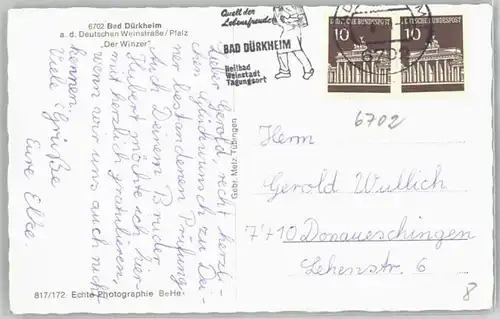 6702 Bad Dürkheim
a. d. Deutschen Weinstraße/Pfalz
"Der Winzer"
Lieber Gerold, recht herzli-
chen Glückwunsch zu Dei-
ner bestandenen Prüfung.
Auch Deinem Bruder
Hubert möchte ich hier-
mit herzlich gratulieren,
wenn wir uns auch nicht
kennen.
Viele Grüße
Eure Elke.
817/172. Echte Photographie BeHe
Gebr. Metz, Tübingen
Quell der
Lebensfreude
BAD DÜRKHEIM
Heilbad
Weinstadt
Tagungsort
10 DEUTSCHE BUNDESPOST
10 DEUTSCHE BUNDESPOST
6702
6702
Herrn
Gerold Wullich
7710 Donaueschingen
Lehenstr. 6
8